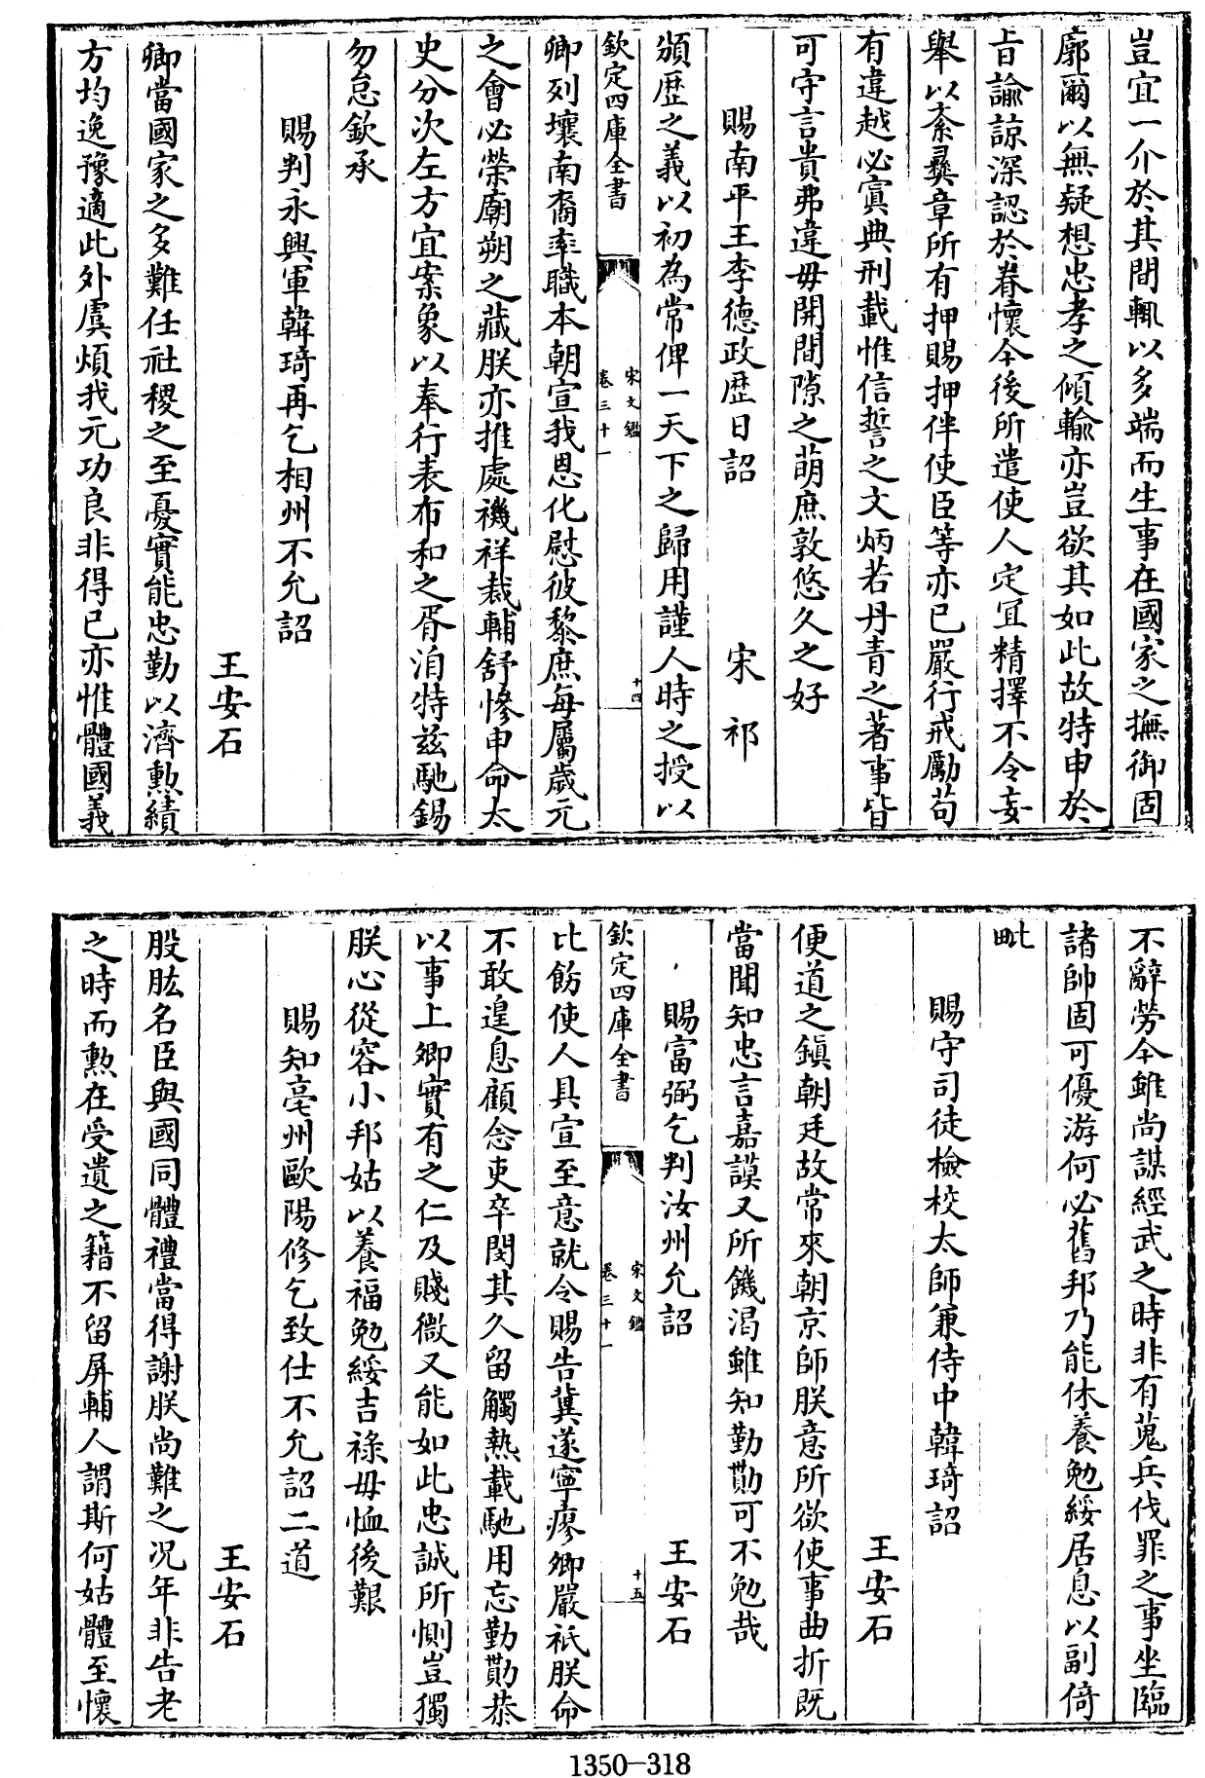 豈宜一介於其間輙以多端而生事在國家之撫御固
廓爾以無疑想忠孝之傾輸亦豈欲其如此故特申於
㫖諭諒深認於眷懷今後所遣使人定宜精擇不令妄
舉以紊彞章所有押賜押伴使臣等亦已嚴行戒勵苟
有違越必寘典刑載惟信誓之文炳若丹青之著事皆
可守言貴弗違毋開間隙之萌庶敦悠久之好
賜南平王李德政歴日詔 宋祁
頒歴之義以初為常俾一天下之歸用謹人時之授以
欽定四庫全書
宋文鑑
卷三十一
十四
卿列壤南裔率職本朝宣我恩化慰彼黎庶每屬歳元
之會必榮廟朔之藏朕亦推處禨祥裁輔舒慘申命太
史分次左方宜案象以奉行表布和之胥洎特兹馳錫
勿怠欽承
賜判永興軍韓琦再乞相州不允詔
王安石
卿當國家之多難任社稷之至憂實能忠勤以濟勲績
方均逸豫適此外虞煩我元功良非得已亦惟體國義
不辭勞今雖尚謀經武之時非有蒐兵伐罪之事坐臨
諸帥固可優游何必舊邦乃能休養勉綏居息以副倚
毗
賜守司徒檢校太師兼侍中韓琦詔
王安石
便道之鎮朝廷故常來朝京師朕意所欲使事曲折既
當聞知忠言嘉謨又所饑渴雖知勤勩可不勉哉
賜富弼乞判汝州允詔 王安石
欽定四庫全書
宋文鑑
卷三十一
十五
比飭使人具宣至意就令賜告冀遂寧瘳卿嚴祇朕命
不敢遑息顧念吏卒閔其久留觸熱載馳用忘勤勩恭
以事上卿實有之仁及賤微又能如此忠誠所惻豈獨
朕心從容小邦姑以養福勉綏吉祿毋恤後艱
賜知亳州歐陽修乞致仕不允詔二道
王安石
股肱名臣與國同體禮當得謝朕尚難之况年非告老
之時而勲在受遺之籍不留屏輔人謂斯何姑體至懷
1350-318